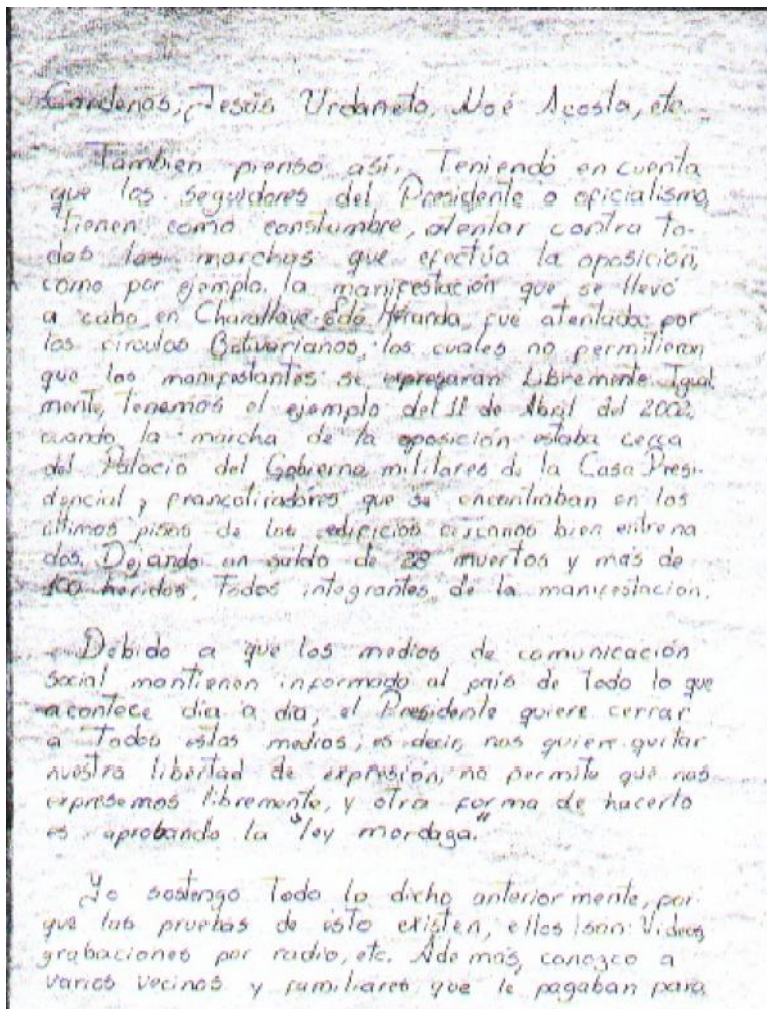 Cardenas, Jesús Urdaneta, Noé Acosta, etc.
Tambien pienso así. Teniendo en cuenta
que los seguidores del Presidente o oficialismo,
tienen como constumbre, atentar contra to-
das las marchas que efectúa la oposición,
como por ejemplo, la manifestación que se llevó
a cabo en Charallave-Edo Miranda, fué atentada por
los circulos Bolivarianos, los cuales no permitieron
que los manifestantes se expresaran Libremente. Igual
mente, Tenemos el ejemplo del 11 de Abril del 2002,
cuando la marcha de la oposición estaba cerca
del Palacio del Gobierno, militares de la Casa Presi-
dencial y francotiradores que se encontraban en los
últimos pisos de los edificios cercanos bien entrena
dos. Dejando un saldo de 28 muertos y más de
100 heridos, Todos integrantes de la manifestación.
Debido a que los medios de comunicación
social mantienen informado al país de Todo lo que
acontece día a día, el Presidente quiere cerrar
a Todos estos medios, es decir, nos quiere quitar
nuestra libertad de expresión, no permite que nos
expresemos libremente, y otra forma de hacerlo
es aprobando la "ley mordaga."
Yo sostengo Todo lo dicho anterior mente, por
que las pruebas de esto existen, ellos son: Videos,
grabaciones por radio, etc. Ade más, conozco a
varios vecinos y familiares que le pagaban para